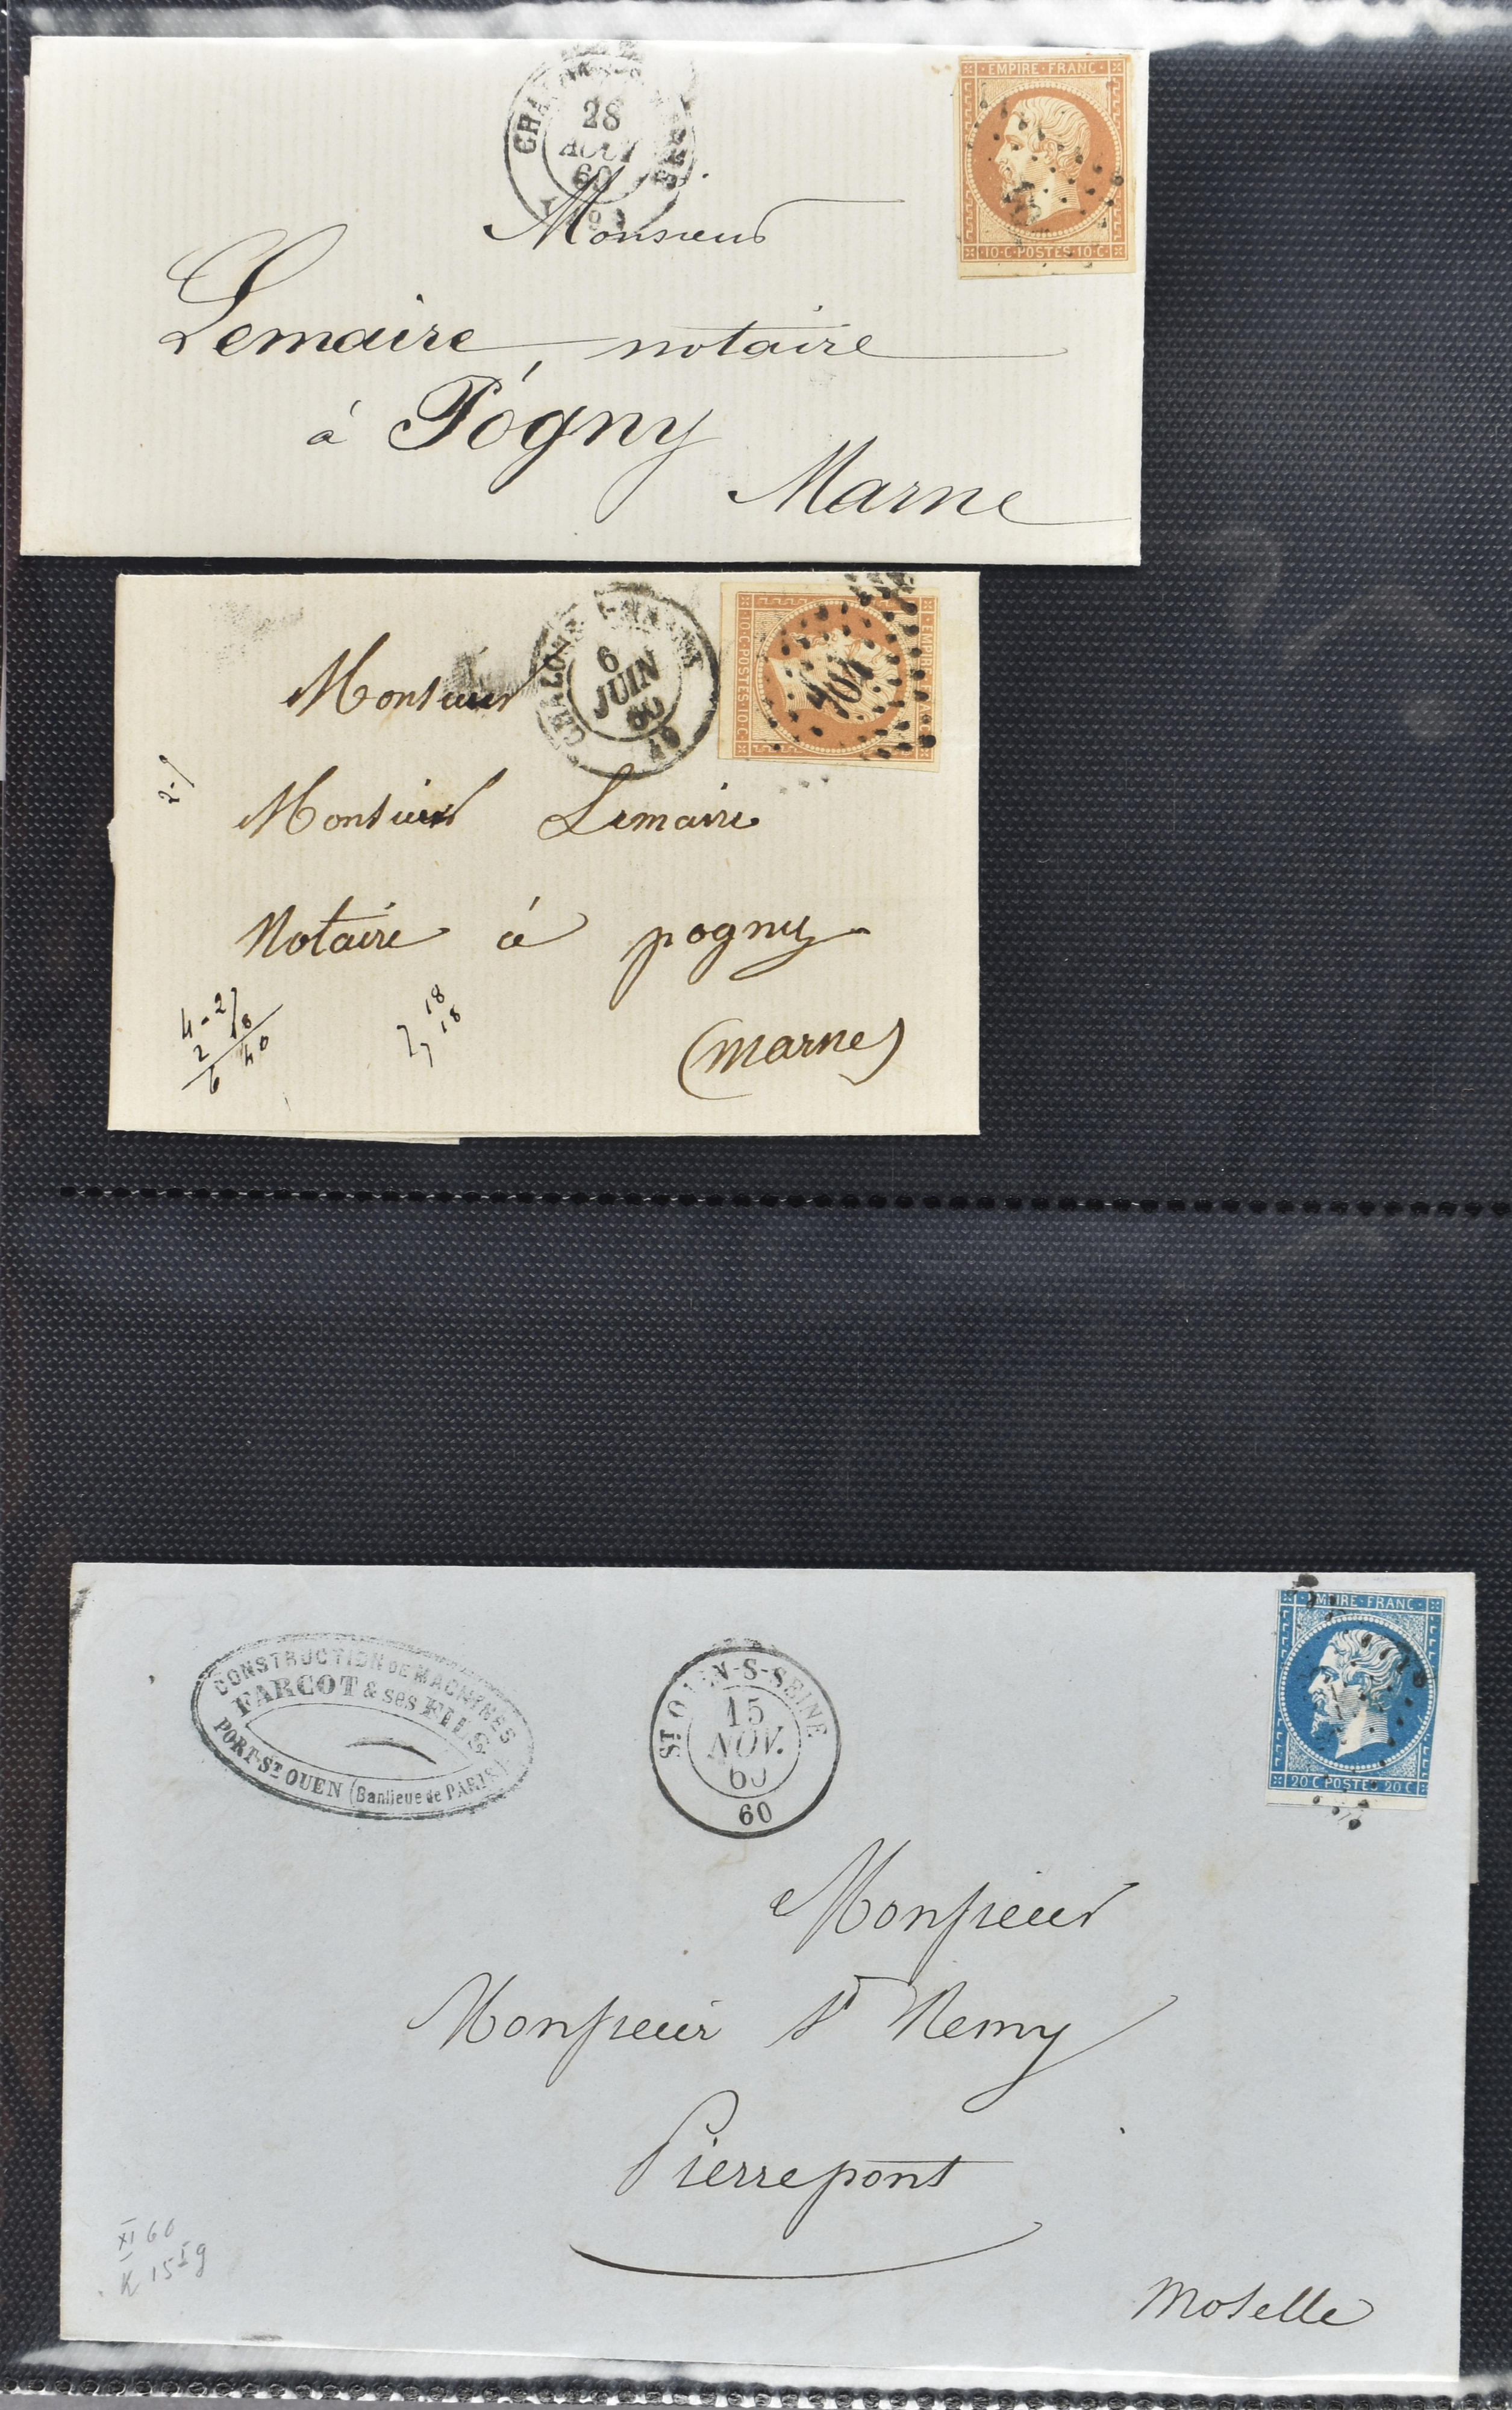 28
AOUT
60
EMPIRE · FRANC ·
10 · C · POSTES · 10 · C ·
Monsieur
Lemaire, notaire
à Pógny
Marne
CHALONS
6
JUIN
60
49
EMPIRE · FRANC
10 · C · POSTES · 10 · C ·
404
Monsieur
2-9
Monsieur Lemaire
Notaire à pogny
(Marne)
18
18
CONSTRUCTION DE MACHINES
FARCOT & ses FILS
PORT-ST OUEN (Banlieue de PARIS)
ST OUEN-S-SEINE
15
NOV.
60
60
EMPIRE · FRANC ·
20 C POSTES 20 C
Monsieur
Monsieur St Remy
Pierrepont
Moselle
XI 60